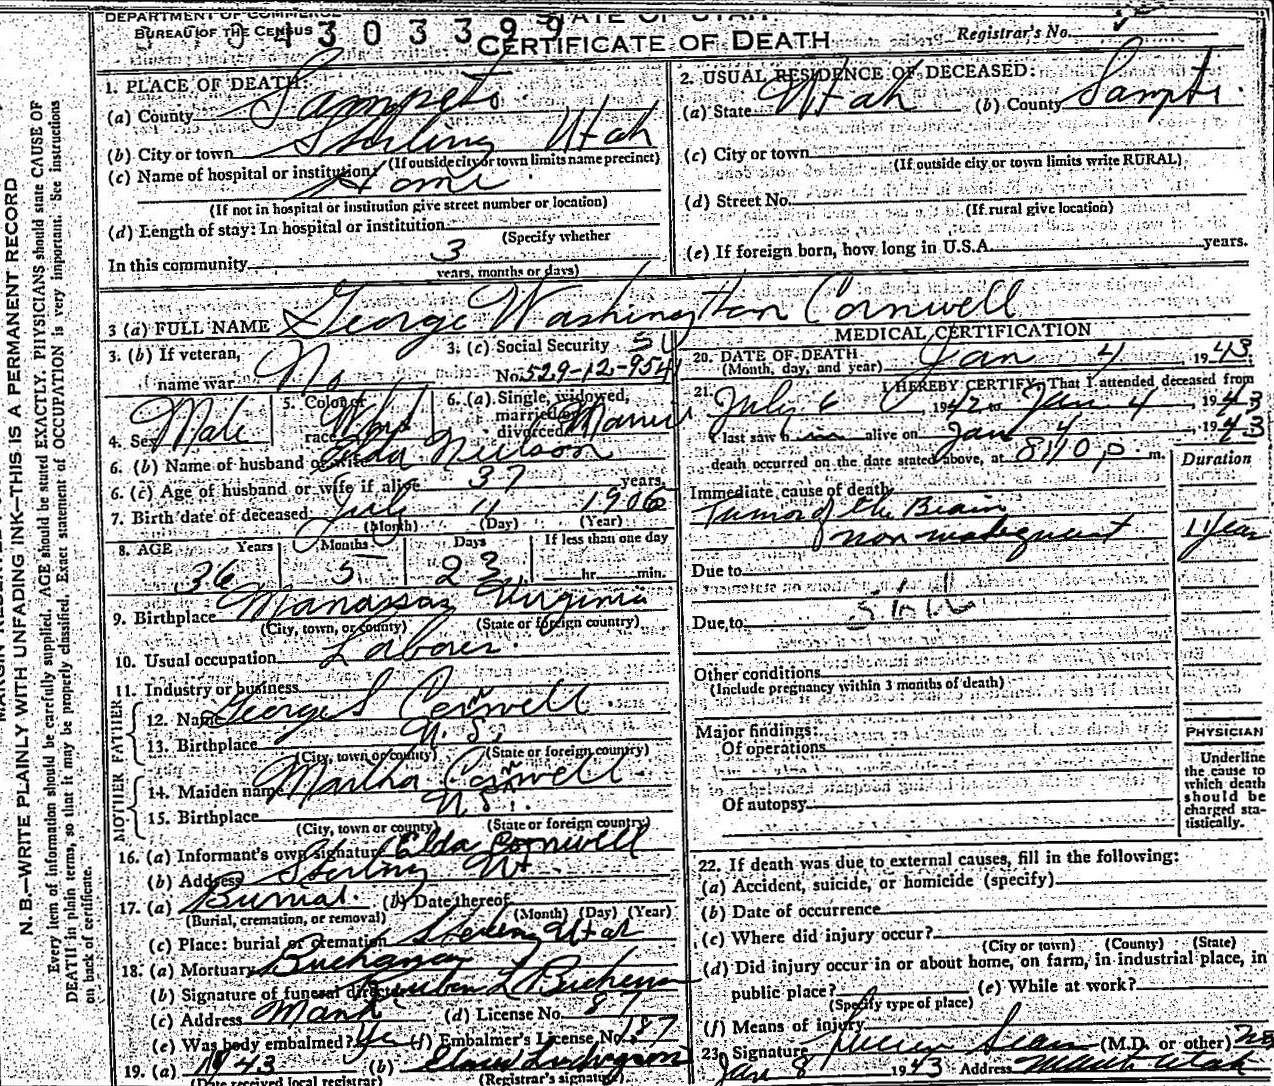 DEPARTMENT OF COMMERCE
BUREAU OF THE CENSUS
STATE OF UTAH
CERTIFICATE OF DEATH
Registrar's No.
N. B.—WRITE PLAINLY WITH UNFADING INK—THIS IS A PERMANENT RECORD
Every item of information should be carefully supplied. AGE should be stated EXACTLY. PHYSICIANS should state CAUSE OF
DEATH in plain terms, so that it may be properly classified. Exact statement of OCCUPATION is very important. See instructions
on back of certificate.
1. PLACE OF DEATH:
(a) County Sanpete
(b) City or town Sterling Utah
(If outside city or town limits name precinct)
(c) Name of hospital or institution: Home
(If not in hospital or institution give street number or location)
(d) Length of stay: In hospital or institution
(Specify whether
In this community 3
years, months or days)
2. USUAL RESIDENCE OF DECEASED:
(a) State Utah (b) County
(c) City or town
(If outside city or town limits write RURAL)
(d) Street No.
(If rural give location)
(e) If foreign born, how long in U.S.A. years.
3 (a) FULL NAME George Washington Cornwell
3. (b) If veteran, name war No
3. (c) Social Security No. 529-12-954
4. Sex Male
5. Color or race
6. (a) Single, widowed, married or divorced
6. (b) Name of husband or wife Elda
6. (c) Age of husband or wife if alive 37 years
7. Birth date of deceased July 11 1906
(Month) (Day) (Year)
8. AGE Years Months Days If less than one day
36 5 23 hr. min.
9. Birthplace Manassas Virginia
(City, town, or county) (State or foreign country)
10. Usual occupation Laborer
11. Industry or business
FATHER
12. Name George S Cornwell
13. Birthplace U. S.
(City, town or county) (State or foreign country)
MOTHER
14. Maiden name Martha Cornwell
15. Birthplace U. S.
(City, town or county) (State or foreign country)
16. (a) Informant's own signature Elda Cornwell
(b) Address Sterling Ut
17. (a) Burial (b) Date thereof
(Burial, cremation, or removal) (Month) (Day) (Year)
(c) Place: burial or cremation Sterling Utah
18. (a) Mortuary Buchanan
(b) Signature of funeral director
(c) Address Manti (d) License No. 87
(e) Was body embalmed? Yes (f) Embalmer's License No. 187
19. (a) 1943 (b)
(Date received local registrar) (Registrar's signature)
MEDICAL CERTIFICATION
20. DATE OF DEATH Jan 4 1943
(Month, day, and year)
21. I HEREBY CERTIFY, That I attended deceased from
July 6 1942 to Jan 4, 1943
I last saw him alive on Jan 4, 1943
death occurred on the date stated above, at 8:10 p m.
Duration
Immediate cause of death
Tumor of the Brain
Due to
Due to
Other conditions
(Include pregnancy within 3 months of death)
Major findings:
Of operations
Of autopsy
PHYSICIAN
Underline
the cause to
which death
should be
charged sta-
tistically.
22. If death was due to external causes, fill in the following:
(a) Accident, suicide, or homicide (specify)
(b) Date of occurrence
(c) Where did injury occur?
(City or town) (County) (State)
(d) Did injury occur in or about home, on farm, in industrial place, in
public place? (e) While at work?
(Specify type of place)
(f) Means of injury
23. Signature (M.D. or other)
Jan 8 1943 Address Manti Utah